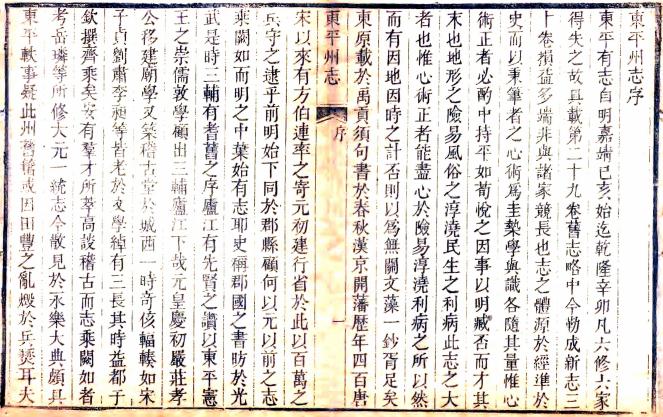 東平州志序
東平有志自明嘉靖己亥始迄乾隆辛卯凡六修六家
得失之故具載第二十九卷舊志略中今剏成新志三
十卷損益多端非與諸家競長也志之體源於經準於
史而以秉筆者之心術爲圭槷學與識各隨其量惟心
術正者必酌中持平如荀悅之因事以明臧否而才其
末也地形之險易風俗之淳澆民生之利病此志之大
者也惟心術正者能盡心於險易淳澆利病之所以然
而有因地因時之計否則以爲無關文藻一鈔胥足矣
東原載於禹貢須句書於春秋漢京開藩歷年四百唐
東平州志
序
一
宋以來有方伯連率之寄元初建行省於此以百萬之
兵守之逮乎前明始下同於郡縣顧何以元以前之志
乘闕如而明之中葉始有志耶史稱郡國之書昉於光
武是時三輔有耆舊之序廬江有先賢之讚以東平憲
王之崇儒敦學顧出三輔廬江下哉元皇慶初嚴莊孝
公移建廟學又築稽古堂於城西一時奇侅輻輳如宋
子貞劉肅李昶等皆老於文學綽有三長其時益都于
欽撰齊乘矣安有羣才所萃高談稽古而志乘闕如者
考岳璘等所修大元一統志今散見於永樂大典頗具
東平軼事疑此州舊籍或因田豐之亂燬於兵燹耳夫